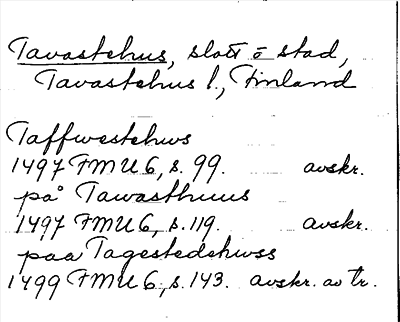 Tavastehus, slott o stad,
Tavastehus l., Finland
Taffwestehws
1497 FMU 6, s. 99. avskr.
på Tawasthuus
1497 FMU 6, s. 119. avskr.
paa Tagestedehwss
1499 FMU 6, s. 143. avskr. av tr.